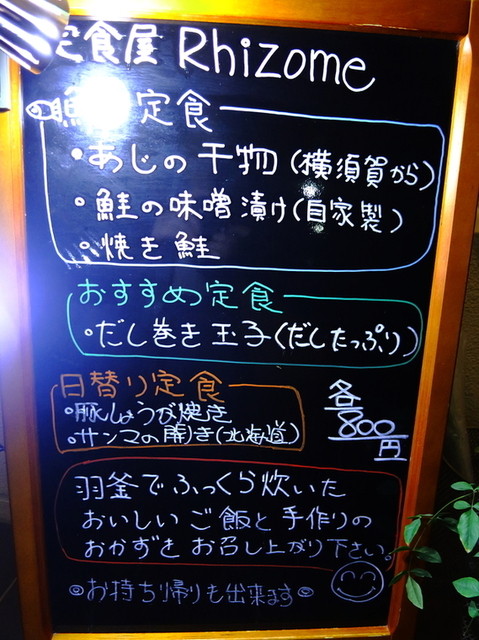 定食屋 Rhizome
定食
・あじの干物(横須賀から)
・鮭の味噌漬け(自家製)
・焼き鮭
おすすめ定食
・だし巻き玉子(だしたっぷり)
日替り定食
・豚しょうが焼き
・サンマの開き(北海道)
各
800
円
羽釜でふっくら炊いた
おいしいご飯と手作りの
おかずをお召し上がり下さい。
◎お持ち帰りも出来ます◎